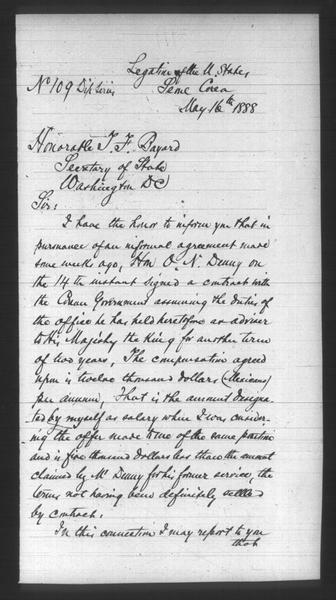 Legation of the U. States
No 109 Dip Series Seoul Corea
May 16th 1888
Honorable T. F. Bayard
Secretary of State
Washington DC
Sir:
I have the honor to inform you that in
pursuance of an informal agreement made
some weeks ago, Hon O. N. Denny on
the 14th instant signed a contract with
the Corean Government assuming the duties of
the office he has held heretofore as adviser
to His Majesty the King for another term
of two years. The compensation agreed
upon is twelve thousand dollars (Mexicans)
per annum, That is the amount designa-
ted by myself as salary when I was consider-
ing the offer made to me of the same position
and is five thousand dollars less than the amount
claimed by Mr Denny for his former service, the
terms not having been definitely settled
by contract.
In this connection I may report to you
that